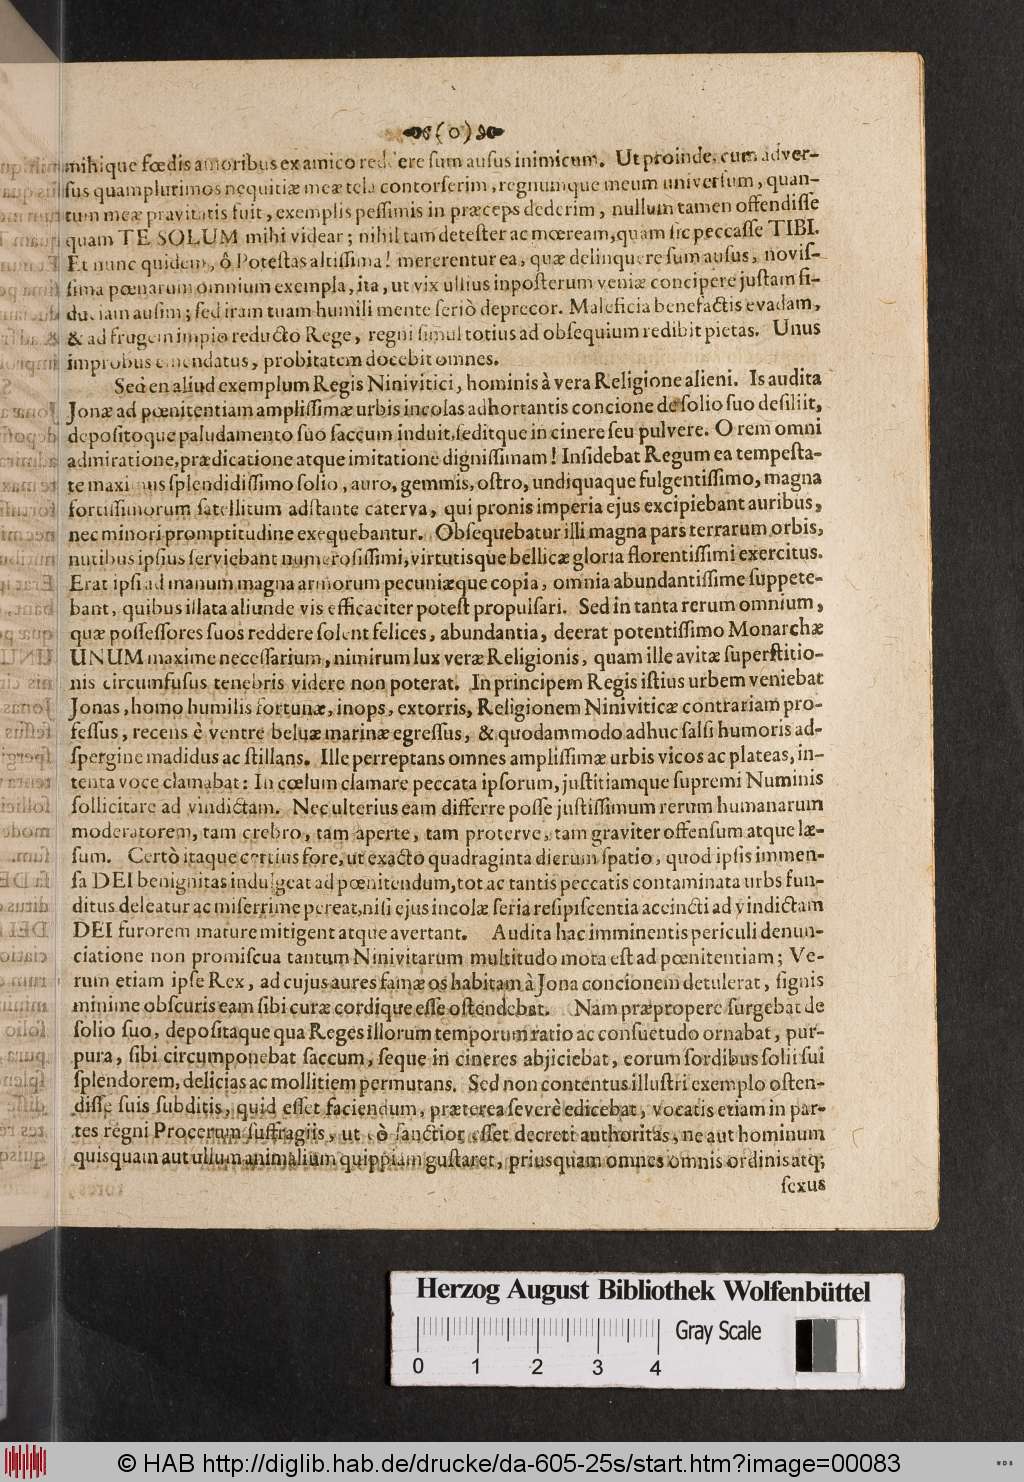 (o)
mihique fœdis amoribus ex amico reddere ſum auſus inimicum. Ut proinde, cum adver-
ſus quamplurimos nequitiæ meæ tela contorſerim, regnumque meum univerſum, quan-
tum meæ pravitatis fuit, exemplis peſſimis in præceps dederim, nullum tamen offendiſſe
quam TE SOLUM mihi videar; nihil tam deteſter ac mœream, quam ſic peccaſſe TIBI.
Et nunc quidem, ô Poteſtas altiſſima! mererentur ea, quæ delinquere ſum auſus, noviſ-
ſima pœnarum omnium exempla, ita, ut vix ullius inpoſterum veniæ concipere juſtam fi-
duciam auſim; ſed iram tuam humili mente ſeriò deprecor. Maleficia benefactis evadam,
& ad frugem impio reducto Rege, regni ſimul totius ad obſequium redibit pietas. Unus
improbus emendatus, probitatem docebit omnes.
Sed en aliud exemplum Regis Ninivitici, hominis à vera Religione alieni. Is audita
Jonæ ad pœnitentiam ampliſſimæ urbis incolas adhortantis concione de ſolio ſuo deſiliit,
depoſitoque paludamento ſuo ſaccum induit, ſeditque in cinere ſeu pulvere. O rem omni
admiratione, prædicatione atque imitatione digniſſimam! Inſidebat Regum ea tempeſta-
te maximus ſplendidiſſimo ſolio, auro, gemmis, oſtro, undiquaque fulgentiſſimo, magna
fortiſſimorum ſatellitum adſtante caterva, qui pronis imperia ejus excipiebant auribus,
nec minori promptitudine exequebantur. Obſequebatur illi magna pars terrarum orbis,
nutibus ipſius ſerviebant numeroſiſſimi, virtutisque bellicæ gloria florentiſſimi exercitus.
Erat ipſi ad manum magna armorum pecuniæque copia, omnia abundantiſſime ſuppete-
bant, quibus illata aliunde vis efficaciter poteſt propulſari. Sed in tanta rerum omnium,
quæ poſſeſſores ſuos reddere ſolent felices, abundantia, deerat potentiſſimo Monarchæ
UNUM maxime neceſſarium, nimirum lux veræ Religionis, quam ille avitæ ſuperſtitio-
nis circumfuſus tenebris videre non poterat. In principem Regis iſtius urbem veniebat
Jonas, homo humilis fortunæ, inops, extorris, Religionem Niniviticæ contrariam pro-
feſſus, recens è ventre beluæ marinæ egreſſus, & quodammodo adhuc ſalſi humoris ad-
ſpergine madidus ac ſtillans. Ille perreptans omnes ampliſſimæ urbis vicos ac plateas, in-
tenta voce clamabat: In cœlum clamare peccata ipſorum, juſtitiamque ſupremi Numinis
ſollicitare ad vindictam. Nec ulterius eam differre poſſe juſtiſſimum rerum humanarum
moderatorem, tam crebro, tam aperte, tam proterve, tam graviter offenſum atque læ-
ſum. Certò itaque certius fore, ut exacto quadraginta dierum ſpatio, quod ipſis immen-
ſa DEI benignitas indulgeat ad pœnitendum, tot ac tantis peccatis contaminata urbs fun-
ditus deleatur ac miſerrime pereat, niſi ejus incolæ ſeria reſipiſcentia accincti ad vindictam
DEI furorem mature mitigent atque avertant. Audita hac imminentis periculi denun-
ciatione non promiſcua tantum Ninivitarum multitudo mota eſt ad pœnitentiam; Ve-
rum etiam ipſe Rex, ad cujus aures famæ os habitam à Jona concionem detulerat, ſignis
minime obſcuris eam ſibi curæ cordique eſſe oſtendebat. Nam præpropere ſurgebat de
ſolio ſuo, depoſitaque qua Reges illorum temporum ratio ac conſuetudo ornabat, pur-
pura, ſibi circumponebat ſaccum, ſeque in cineres abjiciebat, eorum ſordibus ſolii ſui
ſplendorem, delicias ac mollitiem permutans. Sed non contentus illuſtri exemplo oſten-
diſſe ſuis ſubditis, quid eſſet faciendum, præterea ſeverè edicebat, vocatis etiam in par-
tes regni Procerum ſuffragiis, ut eò ſanctior eſſet decreti authoritas, ne aut hominum
quisquam aut ullum animalium quippiam guſtaret, priusquam omnes omnis ordinis atq;
ſexus
Herzog August Bibliothek Wolfenbüttel
0 1 2 3 4 Gray Scale
© HAB http://diglib.hab.de/drucke/da-605-25s/start.htm?image=00083